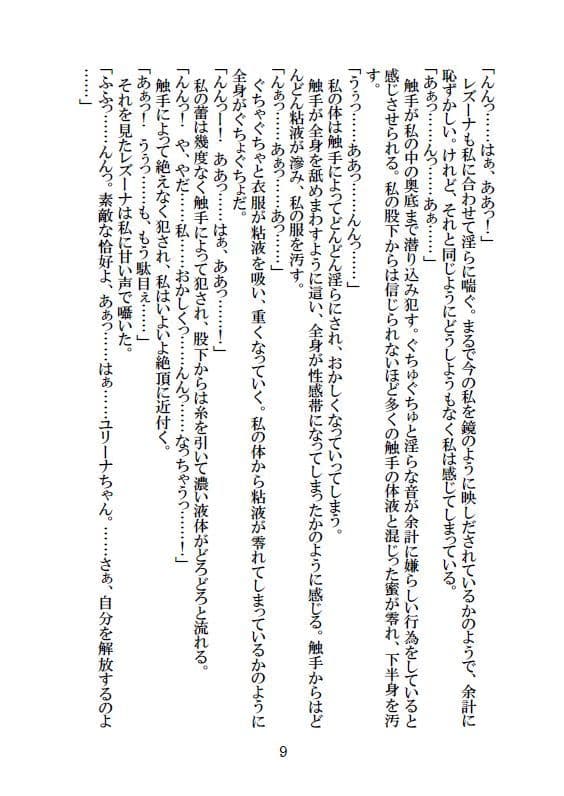 「んんっ……はぁ、ああっ！」
　レズーナも私に合わせて淫らに喘ぐ。まるで今の私を鏡のように映しだされているかのようで、余計に
恥ずかしい。けれど、それと同じようにどうしようもなく私は感じてしまっている。
「あぁっ……んっ……あぁ……」
　触手が私の中の奥底まで潜り込み犯す。ぐちゅぐちゅと淫らな音が余計に嫌らしい行為をしていると
感じさせられる。私の股下からは信じられないほど多くの触手の体液と混じった蜜が零れ、下半身を汚
す。
「うぅっ……ああっ……んんっ……」
　私の体は触手によってどんどん淫らにされ、おかしくなっていってしまう。
　触手が全身を舐めまわすように這い、全身が性感帯になってしまったかのように感じる。触手からはど
んどん粘液が滲み、私の服を汚す。
「んぁっ……あぁっ……あっ……」
　ぐちゃぐちゃと衣服が粘液を吸い、重くなっていく。私の体から粘液が零れてしまっているかのように
全身がぐちょぐちょだ。
「んんっー！　ああっ……はぁ、ああっ……！」
　私の蕾は幾度なく触手によって犯され、股下からは糸を引いて濃い液体がどろどろと流れる。
「んんっ！　や、やだ……私……おかしくっ……んんっ……なっちゃうっ……！」
　触手によって絶えなく犯され、私はいよいよ絶頂に近付く。
「あぁっ！　うぅっ……も、もう駄目ぇ……」
　それを見たレズーナは私に甘い声で囁いた。
「ふふっ……んんっ。素敵な恰好よ、あぁっ……はぁ……ユリーナちゃん。……さぁ、自分を解放するのよ
……」
9